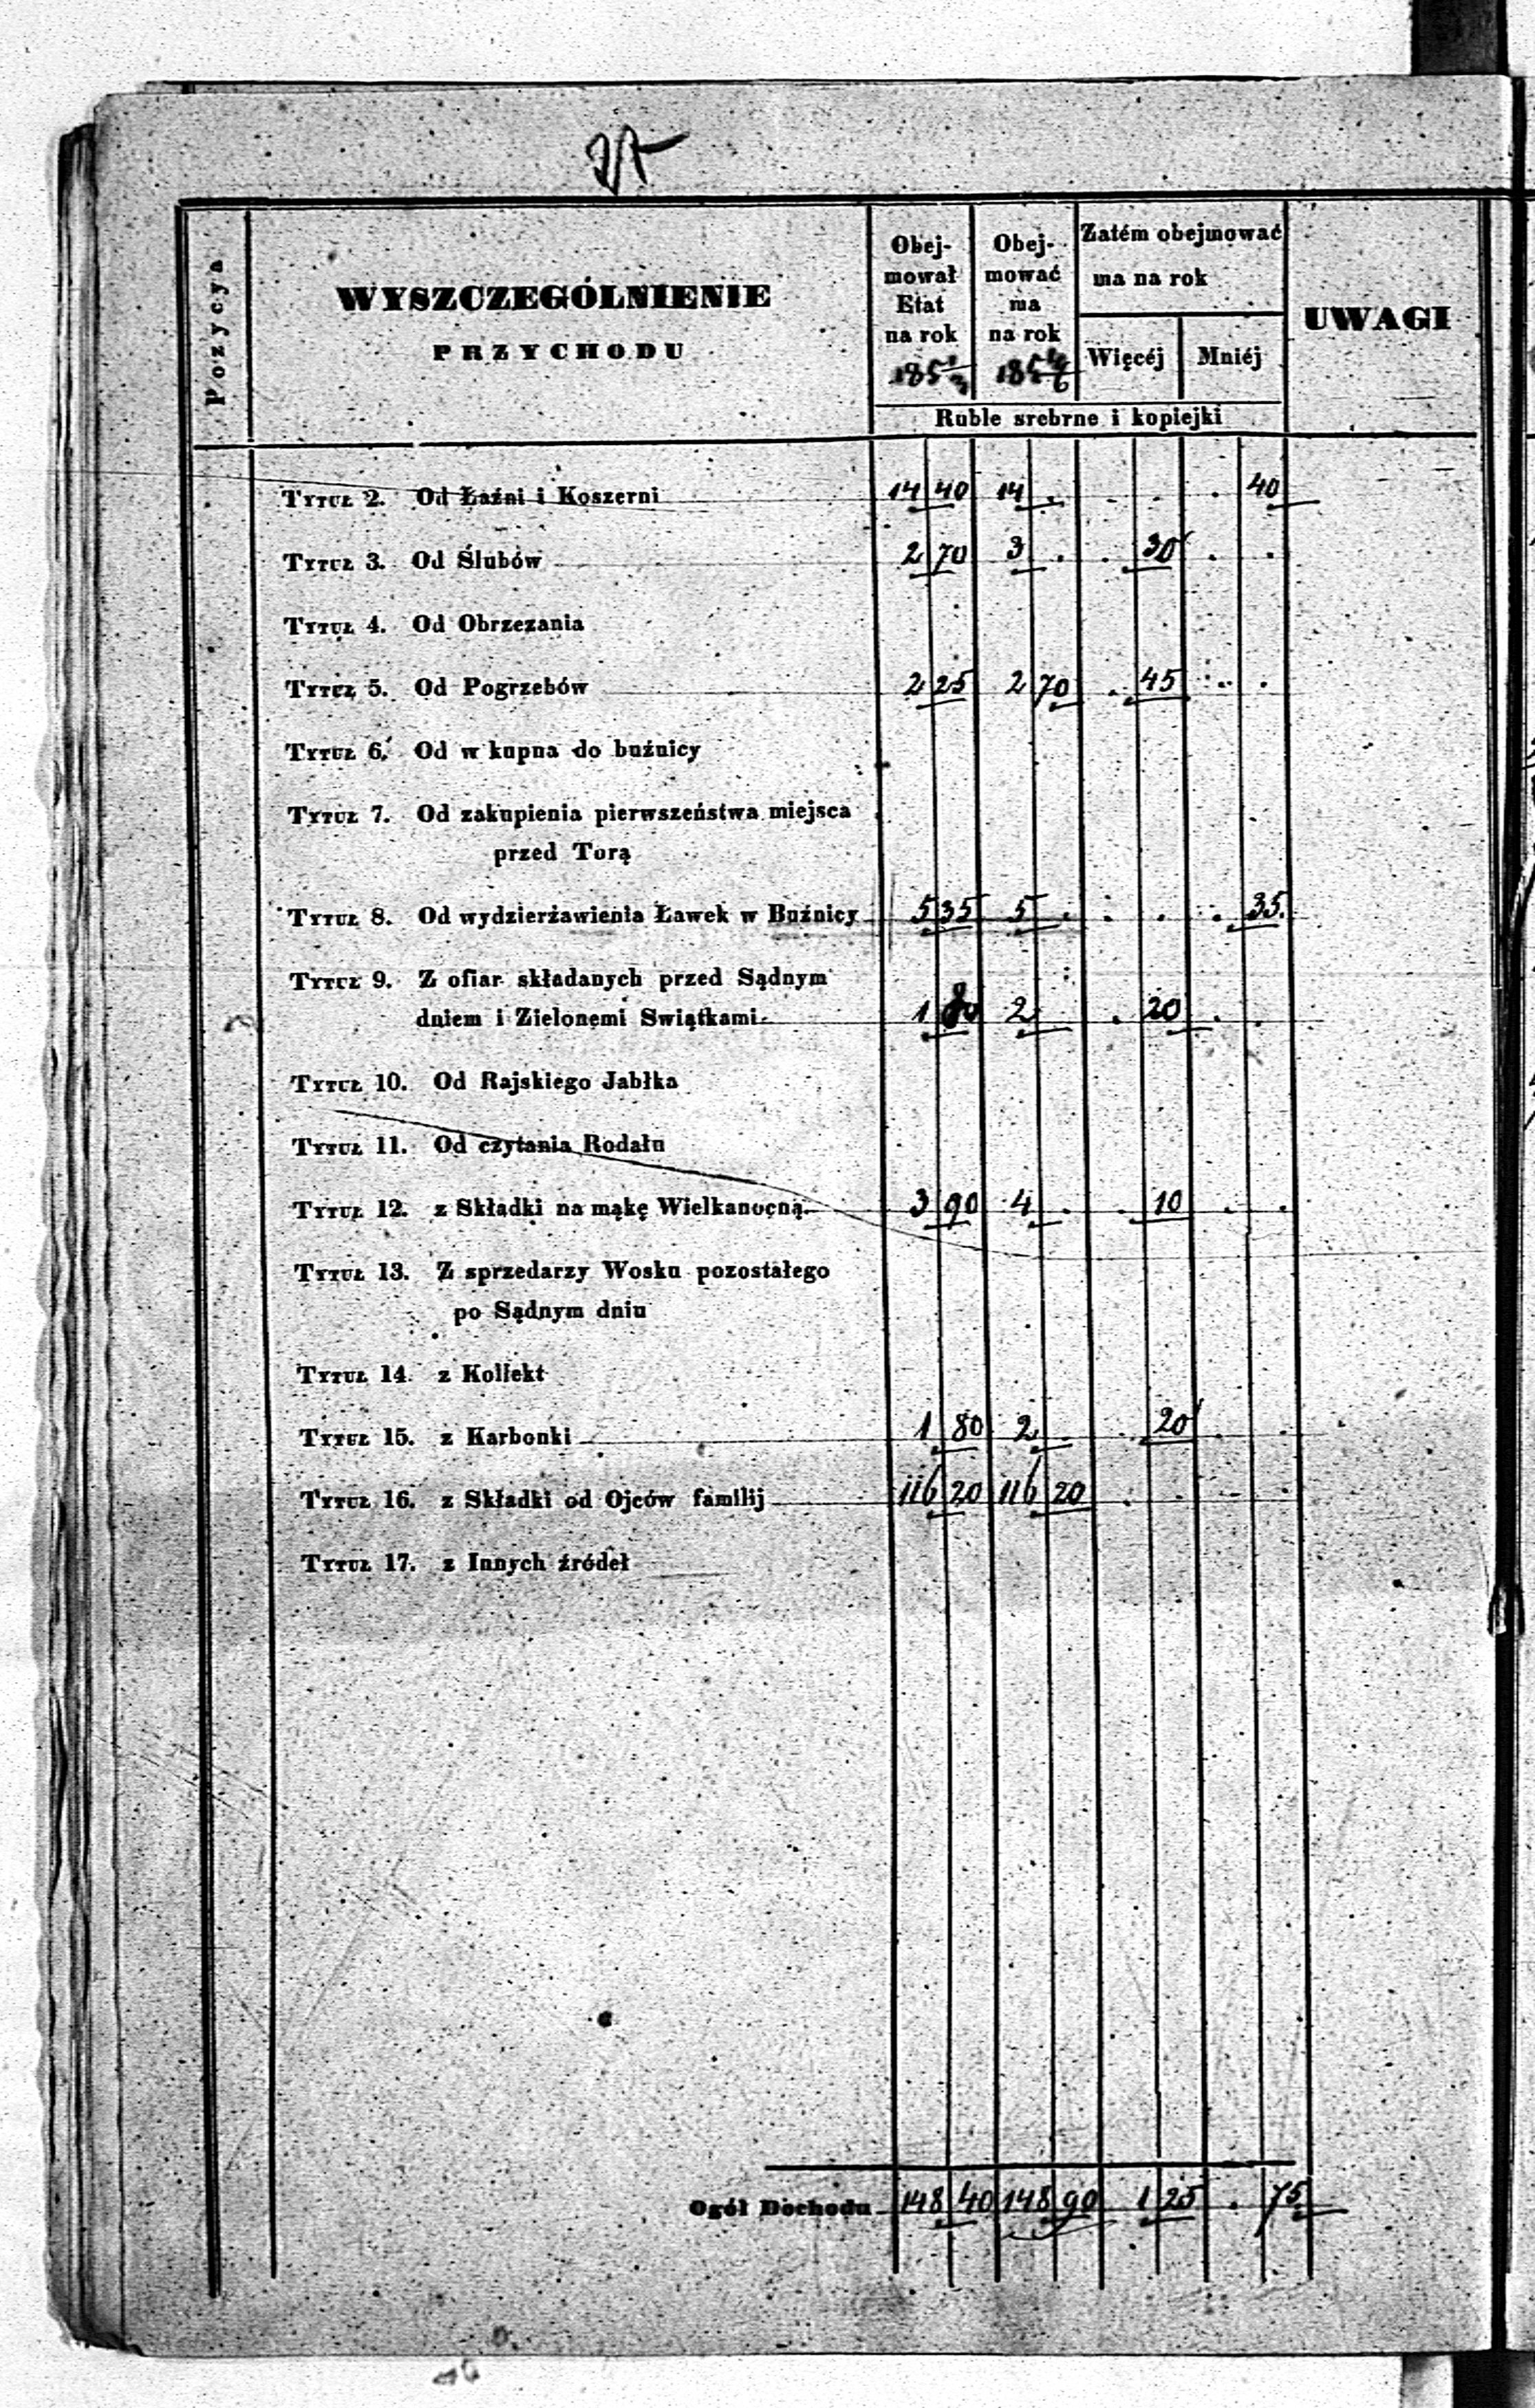 Pozycya
WYSZCZEGÓLNIENIE
PRZYCHODU
Obej-
mował
Etat
na rok
Obej-
mować
ma
na rok
Zatém obejmować
ma na rok
Więcéj
Mniéj
UWAGI
Ruble srebrne i kopiejki
Tytuł 2. Od Łaźni i Koszerni 14 40 14 . . . . 40
Tytuł 3. Od Ślubów 2 70 3 . . 30 . .
Tytuł 4. Od Obrzezania
Tytuł 5. Od Pogrzebów 2 25 2 70 . 45 . .
Tytuł 6. Od w kupna do buźnicy
Tytuł 7. Od zakupienia pierwszeństwa miejsca
przed Torą
Tytuł 8. Od wydzierżawienia Ławek w Buźnicy 5 35 5 . . . . 35.
Tytuł 9. Z ofiar składanych przed Sądnym
dniem i Zielonemi Swiątkami 1 80 2 . 20 . .
Tytuł 10. Od Rajskiego Jabłka
Tytuł 11. Od czytania Rodału
Tytuł 12. z Składki na mąkę Wielkanocną 3 90 4 . . 10 . .
Tytuł 13. Z sprzedarzy Wosku pozostałego
po Sądnym dniu
Tytuł 14. z Kollekt
Tytuł 15. z Karbonki 1 80 2 . . 20 . .
Tytuł 16. z Składki od Ojców familij 116 20 116 20 . . . .
Tytuł 17. z Innych źródeł
Ogół Dochodu 148 40 148 90 1 25 . 75